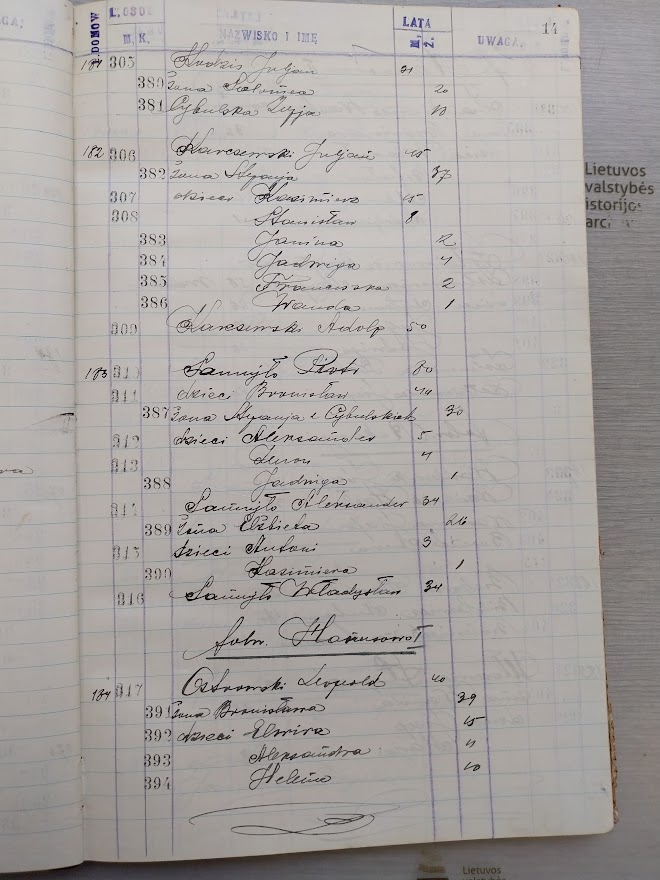 14
L. DOMÓW L. OSÓB NAZWISKO I IMĘ LATA UWAGA.
M. K. M. Ż.
181 305 Juljan 31
380 żona Salomea 20
381 Cybulska Zofja
182 306 Karczewski Juljan 45
382 żona Stefanja 37
307 dzieci Kazimierz 15
308 Stanisław 8
383 Janina 12
384 Jadwiga 4
385 Franciszka 2
386 Wanda 1
309 Karczewski Adolf 50
183 310 Samujło Piotr 80
311 dzieci Bronisław 44
387 żona Stefanja z Cybulskich 30
312 dzieci Aleksander 5
313 Zenon 4
388 Jadwiga 1
314 Samujło Aleksander 34
389 żona Elżbieta 26
315 dzieci Antoni 3
390 Kazimiera 1
316 Samujło Władysław 34
folw. I
184 317 Ostrowski Leopold 40
391 żona Bronisława 39
392 dzieci Elwira 15
393 Aleksandra 11
394 Helena 10
Lietuvos
valstybės
istorijos
Lietuvos